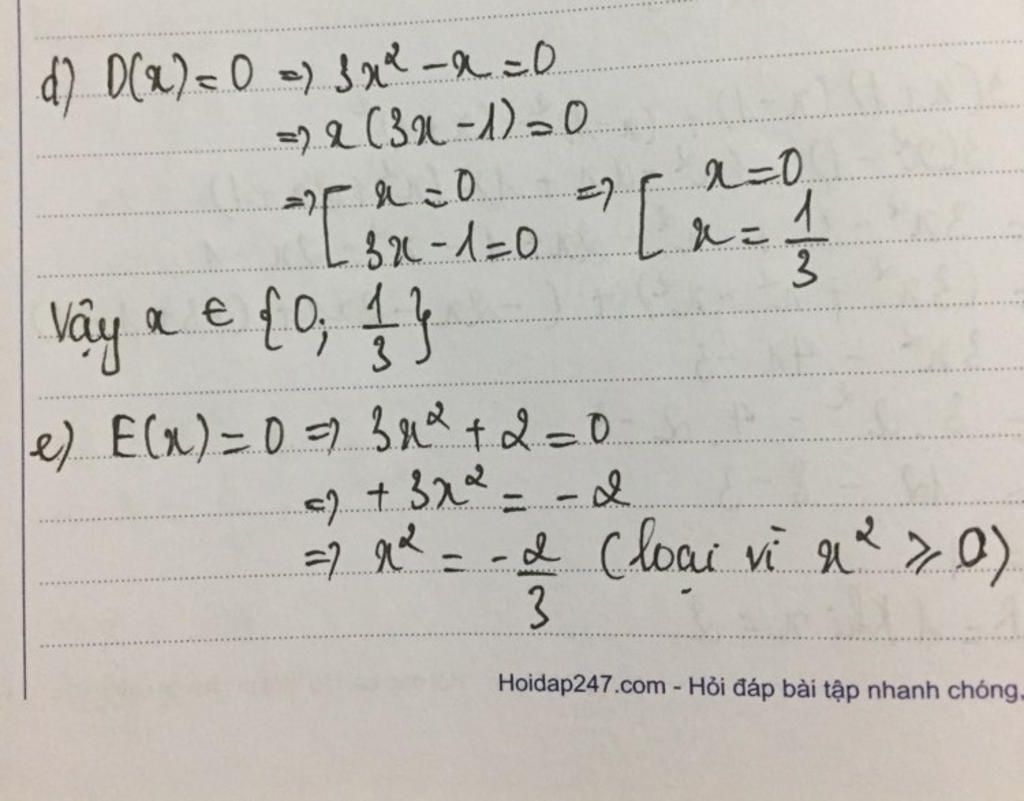 d) D(x) = 0 => 3x² - x = 0
=> x(3x - 1) = 0
=> [ x = 0 => [ x = 0
3x - 1 = 0 x = 1/3
Vậy x ∈ {0; 1/3}
e) E(x) = 0 => 3x² + 2 = 0
=> + 3x² = - 2
=> x² = - 2/3 (loại vì x² ⩾ 0)
Hoidap247.com - Hỏi đáp bài tập nhanh chóng,